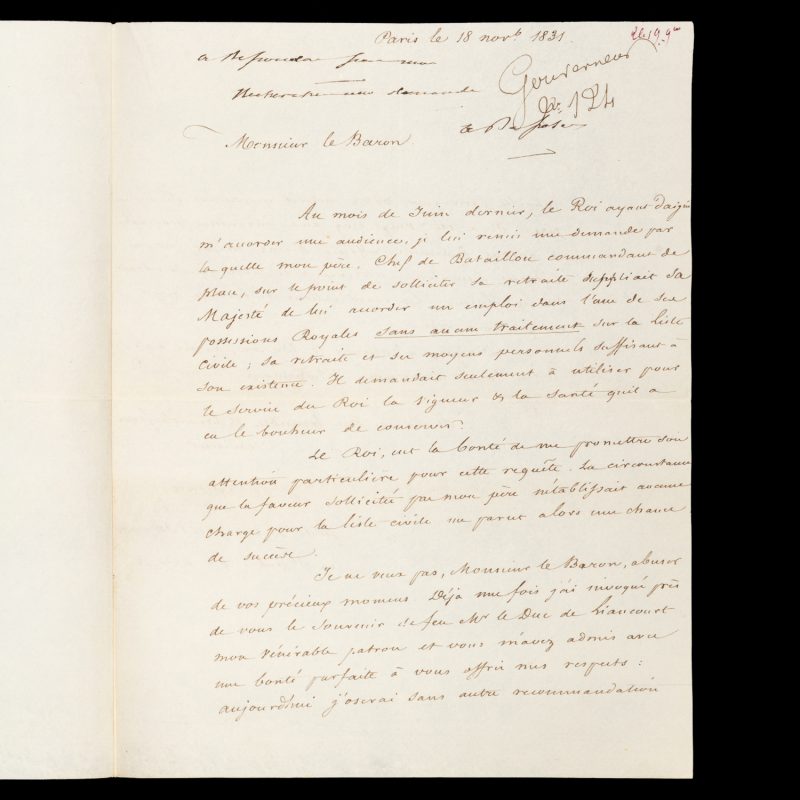 Paris le 18 novb. 1831.
a Répondre
Rechercher une demande
Gouverneur
No. 124
Monsieur le Baron.
Au mois de Juin dernier, le Roi ayant daigné
m'accorder une audience, je lui remis une demande par
la quelle mon père, Chef de Bataillon commandant de
place, sur le point de solliciter sa retraite suppliait Sa
Majesté de lui accorder un emploi dans l'une de ses
possessions Royales sans aucun traitement sur la Liste
civile; sa retraite et ses moyens personnels suffisant à
son existence. Il demandait seulement à utiliser pour
le service du Roi la vigueur & la santé qu'il a
eu le bonheur de conserver.
Le Roi, eut la bonté de me promettre son
attention particulière pour cette requête. La circonstance
que la faveur sollicitée par mon père n'établissait aucune
charge pour la liste civile me parut alors une chance
de succèse.
Je ne veux pas, Monsieur le Baron, abuser
de vos précieux momens. Déja une fois j'ai invoqué près
de vous le souvenir de feu Mr le Duc de Liancourt
mon vénérable patron et vous m'avez admis avec
une bonté parfaite à vous offrir mes respects:
aujourd'hui j'oserai sans autre recommandation